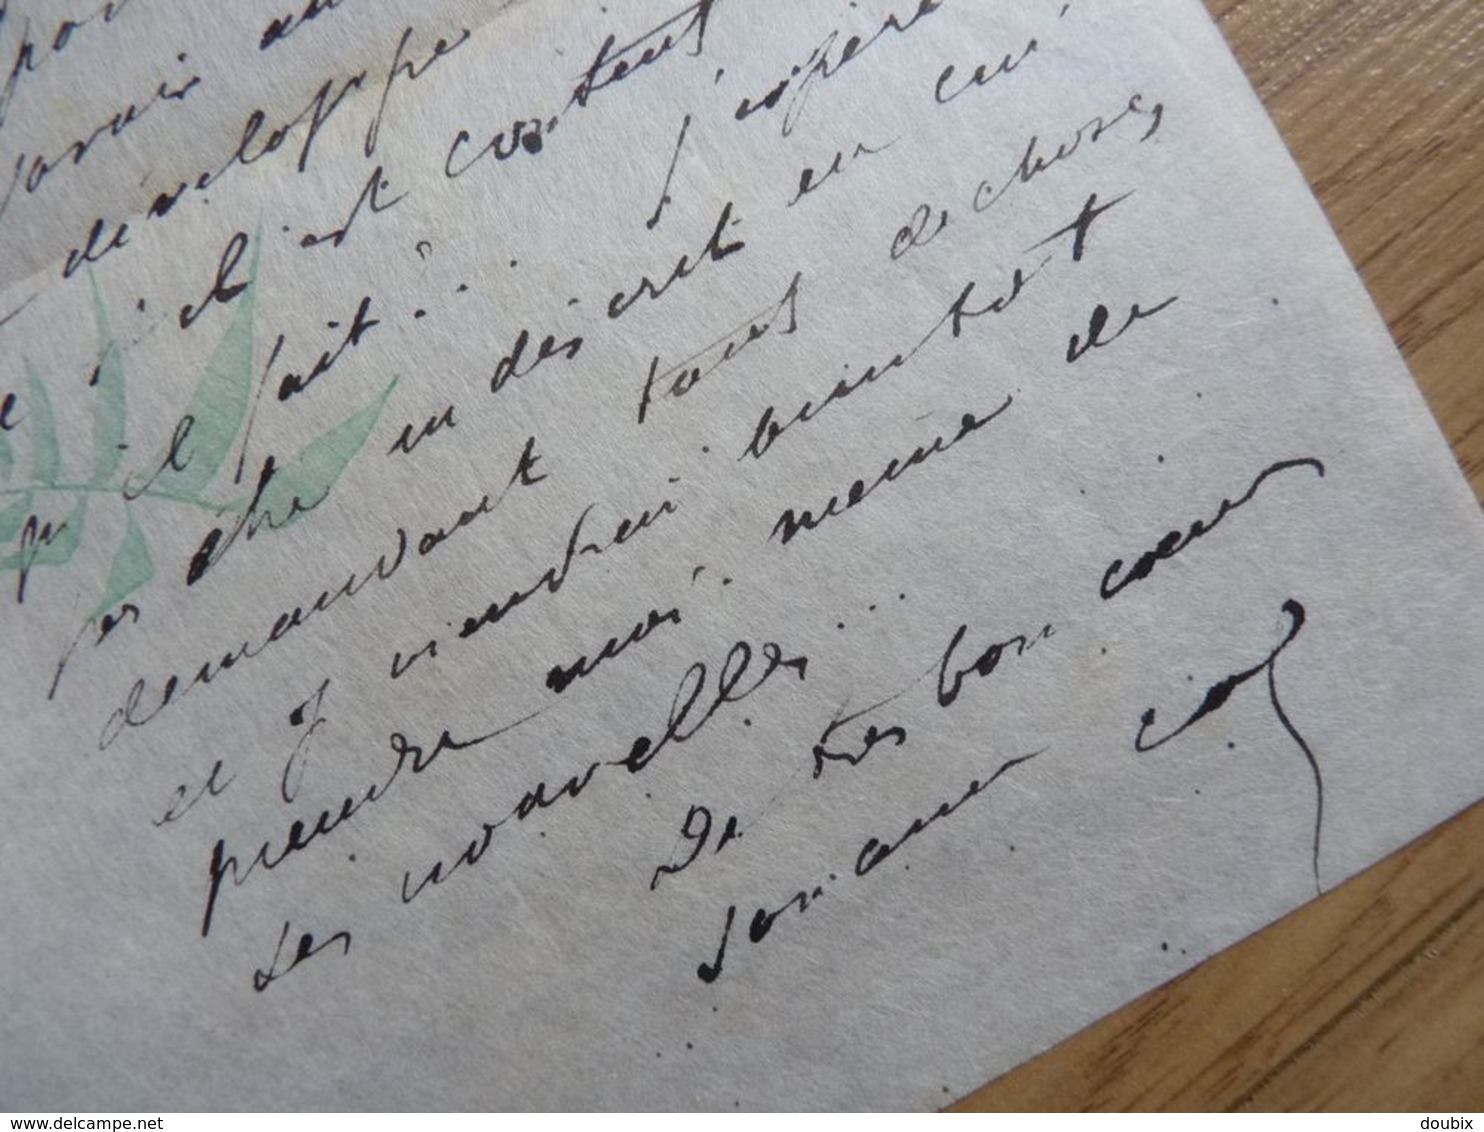 savoir
développe
qu'il est content
qu'il fait? .. J'espère
pas être indiscrèt en
demandant tout de choses,
et je viendrai bientôt
prendre moi même de
ses nouvelles ...
De très bon coeur
son ami
www.delcampe.net
doubix